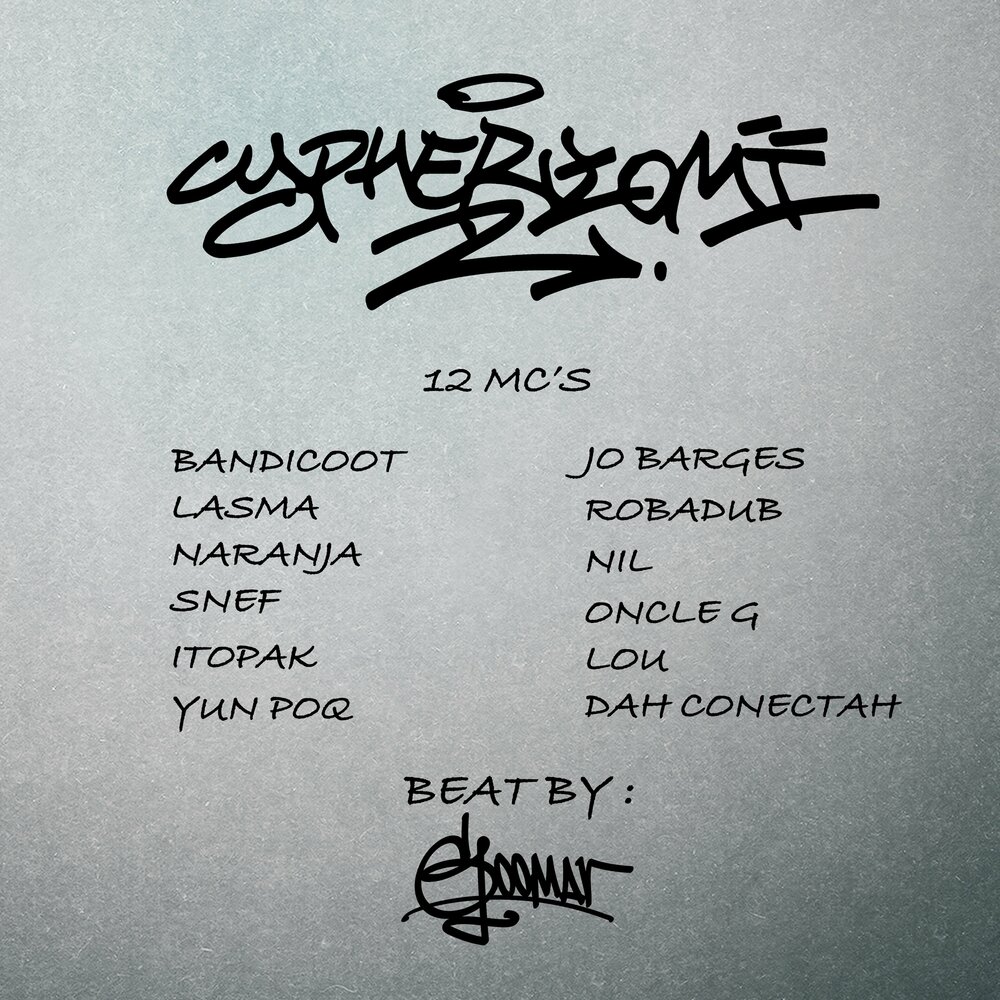 CYPHERIZOMI
12 MC'S
BANDICOOT
LASMA
NARANJA
SNEF
ITOPAK
YUN POQ
JO BARGES
ROBADUB
NIL
ONCLE G
LOU
DAH CONECTAH
BEAT BY :